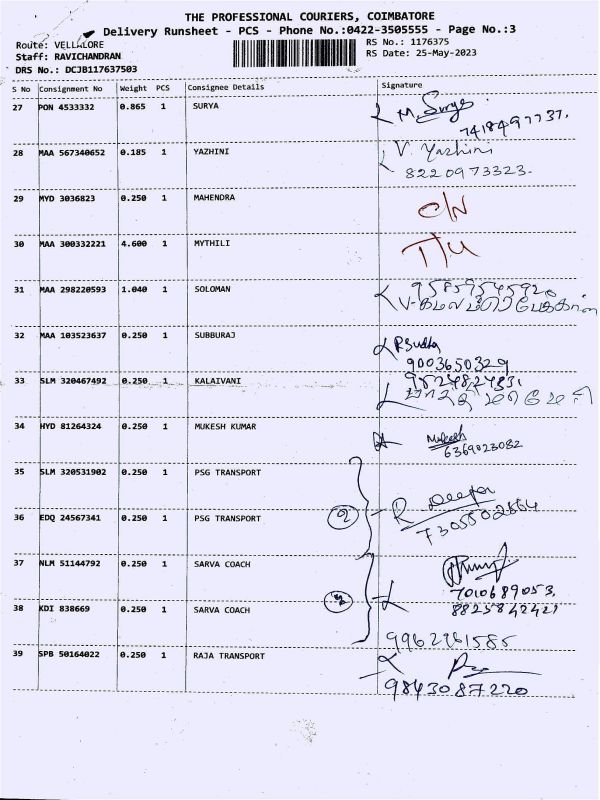 THE PROFESSIONAL COURIERS, COIMBATORE
Delivery Runsheet - PCS - Phone No.:0422-3505555 - Page No.:3
Route: VELLALORE
RS No.: 1176375
Staff: RAVICHANDRAN
RS Date: 25-May-2023
DRS No.: DCJB117637503
S No Consignment No Weight PCS Consignee Details Signature
27 PON 4533332 0.865 1 SURYA M. Surya
7418497737.
28 MAA 567340652 0.185 1 YAZHINI V. Yazhini
8220973323.
29 MYD 3036823 0.250 1 MAHENDRA C/N
30 MAA 300332221 4.600 1 MYTHILI T/U
31 MAA 298220593 1.040 1 SOLOMAN
32 MAA 103523637 0.250 1 SUBBURAJ
9003650329
33 SLM 320467492 0.250 1 KALAIVANI
34 HYD 81264324 0.250 1 MUKESH KUMAR Mukesh
6369023082
35 SLM 320531902 0.250 1 PSG TRANSPORT
36 EDQ 24567341 0.250 1 PSG TRANSPORT 2 R Deepa
7305502864
37 NLM 51144792 0.250 1 SARVA COACH
7010689053.
38 KDI 838669 0.250 1 SARVA COACH 2 8825842421
39 SPB 50164022 0.250 1 RAJA TRANSPORT
9843087220